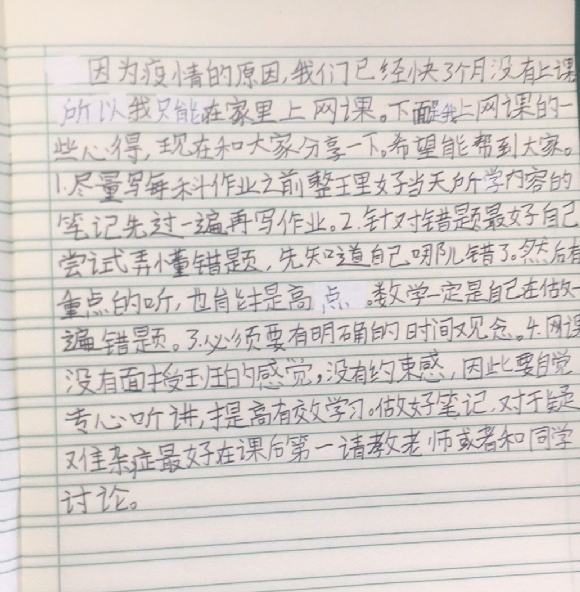 因为疫情的原因,我们已经快3个月没有上课
所以我只能在家里上网课。下面是我上网课的一
些心得,现在和大家分享一下。希望能帮到大家。
1.尽量写每科作业之前整理好当天所学内容的
笔记先过一遍再写作业。2.针对错题最好自己
尝试弄懂错题,先知道自己哪儿错了。然后有
重点的听,也能提高点。数学一定是自己在做一
遍错题。3.必须要有明确的时间观念。4.网课
没有面授班的感觉,没有约束感,因此要自觉
专心听讲,提高有效学习。做好笔记,对于疑
难杂症最好在课后第一请教老师或者和同学
讨论。